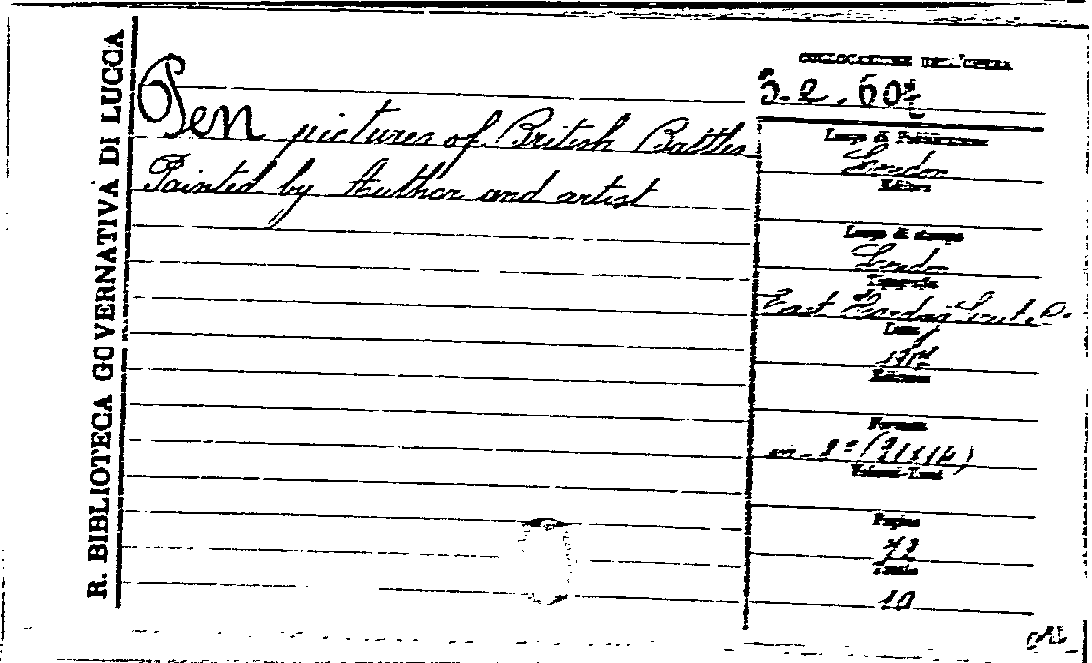 R. BIBLIOTECA GOVERNATIVA DI LUCCA
Pen pictures of British Battles
Painted by Author and artist
COLLOCAZIONE DELL'OPERA
Luogo di Pubblicazione
London
Editore
Luogo di stampa
London
Tipografia
East
Data
Edizione
Formato
in-8°
Volumi-Tomi
Pagine
72
10